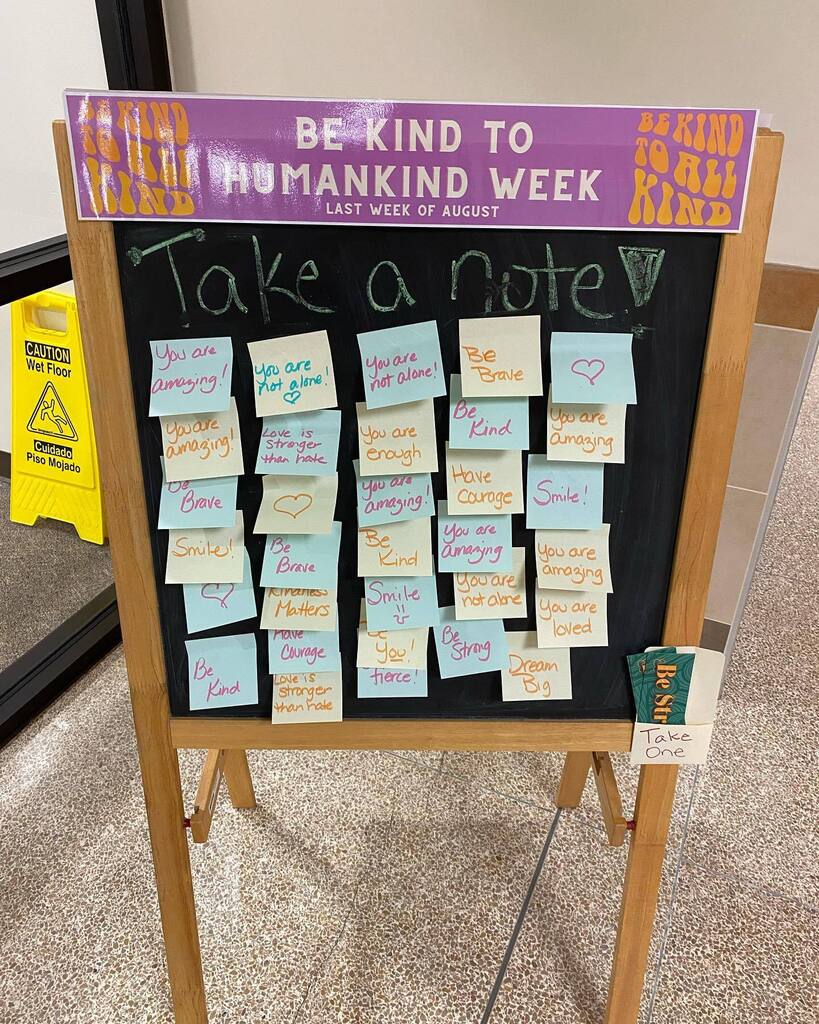 BE KIND
TO ALL
KIND
BE KIND TO
HUMANKIND WEEK
LAST WEEK OF AUGUST
BE KIND
TO ALL
KIND
Take a note!
You are
amazing!
You are
not alone!
You are
not alone!
Be
Brave
You are
amazing!
Love is
stronger
than hate
You are
enough
Be
Kind
You are
amazing
Be
Brave
You are
amazing!
Have
Courage
Smile!
Smile!
Be
Brave
Be
Kind
You are
amazing
You are
amazing
Kindness
Matters
Smile
You are
not alone
You are
loved
Be
Kind
Have
Courage
Be
You!
Be
Strong
Dream
Big
Love is
stronger
than hate
fierce!
Be Str
Take
One
CAUTION
Wet Floor
Cuidado
Piso Mojado